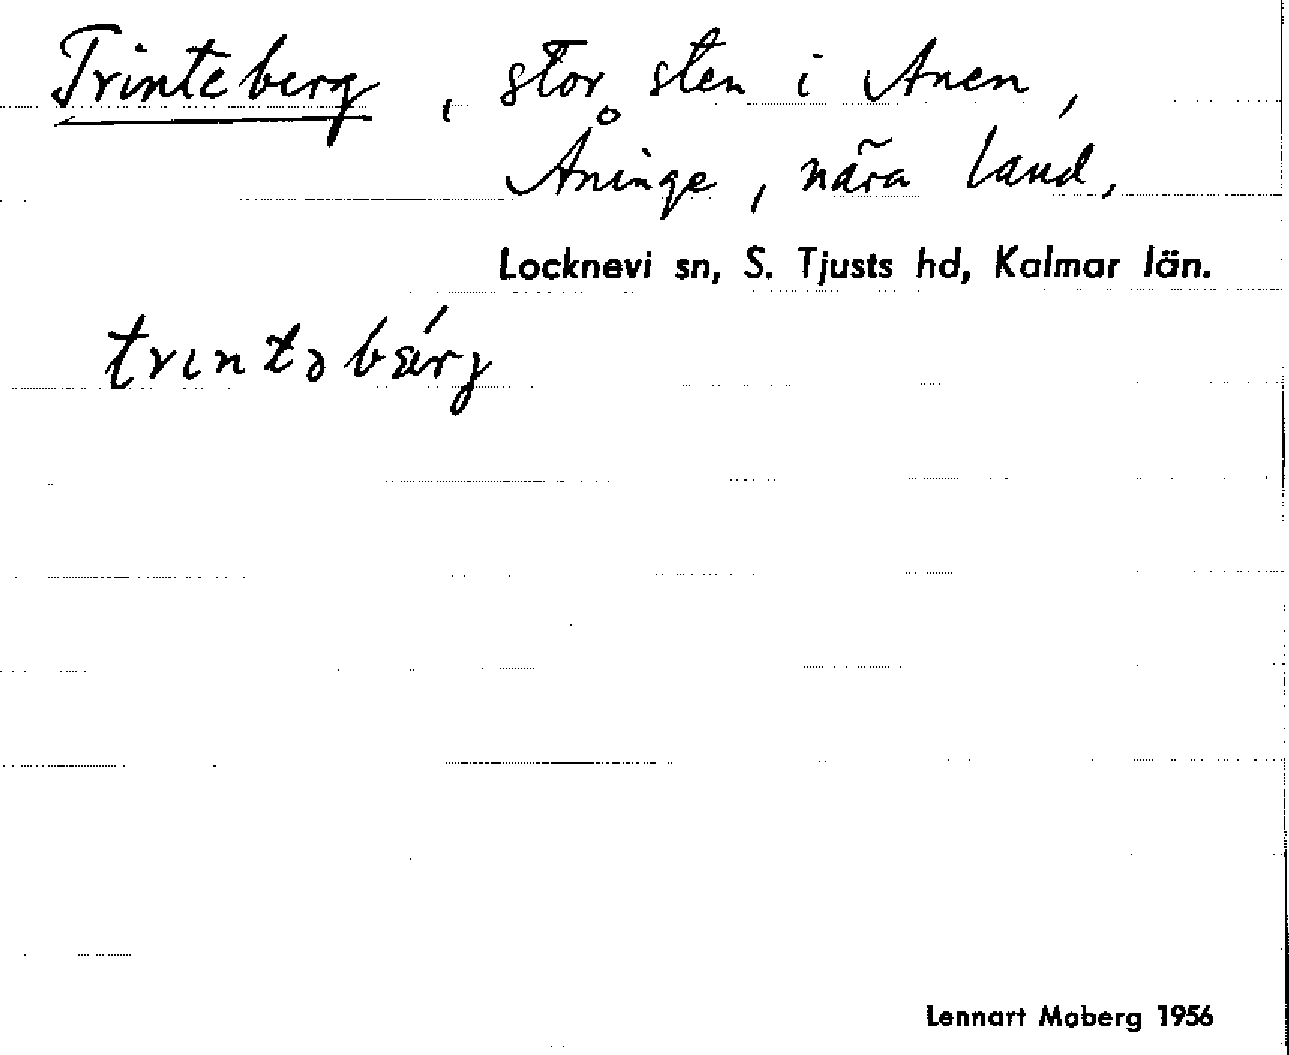 Trinteberg, stor sten i Anen,
Åninge, nära land,
Locknevi sn, S. Tjusts hd, Kalmar län.
trıntəbærj
Lennart Moberg 1956